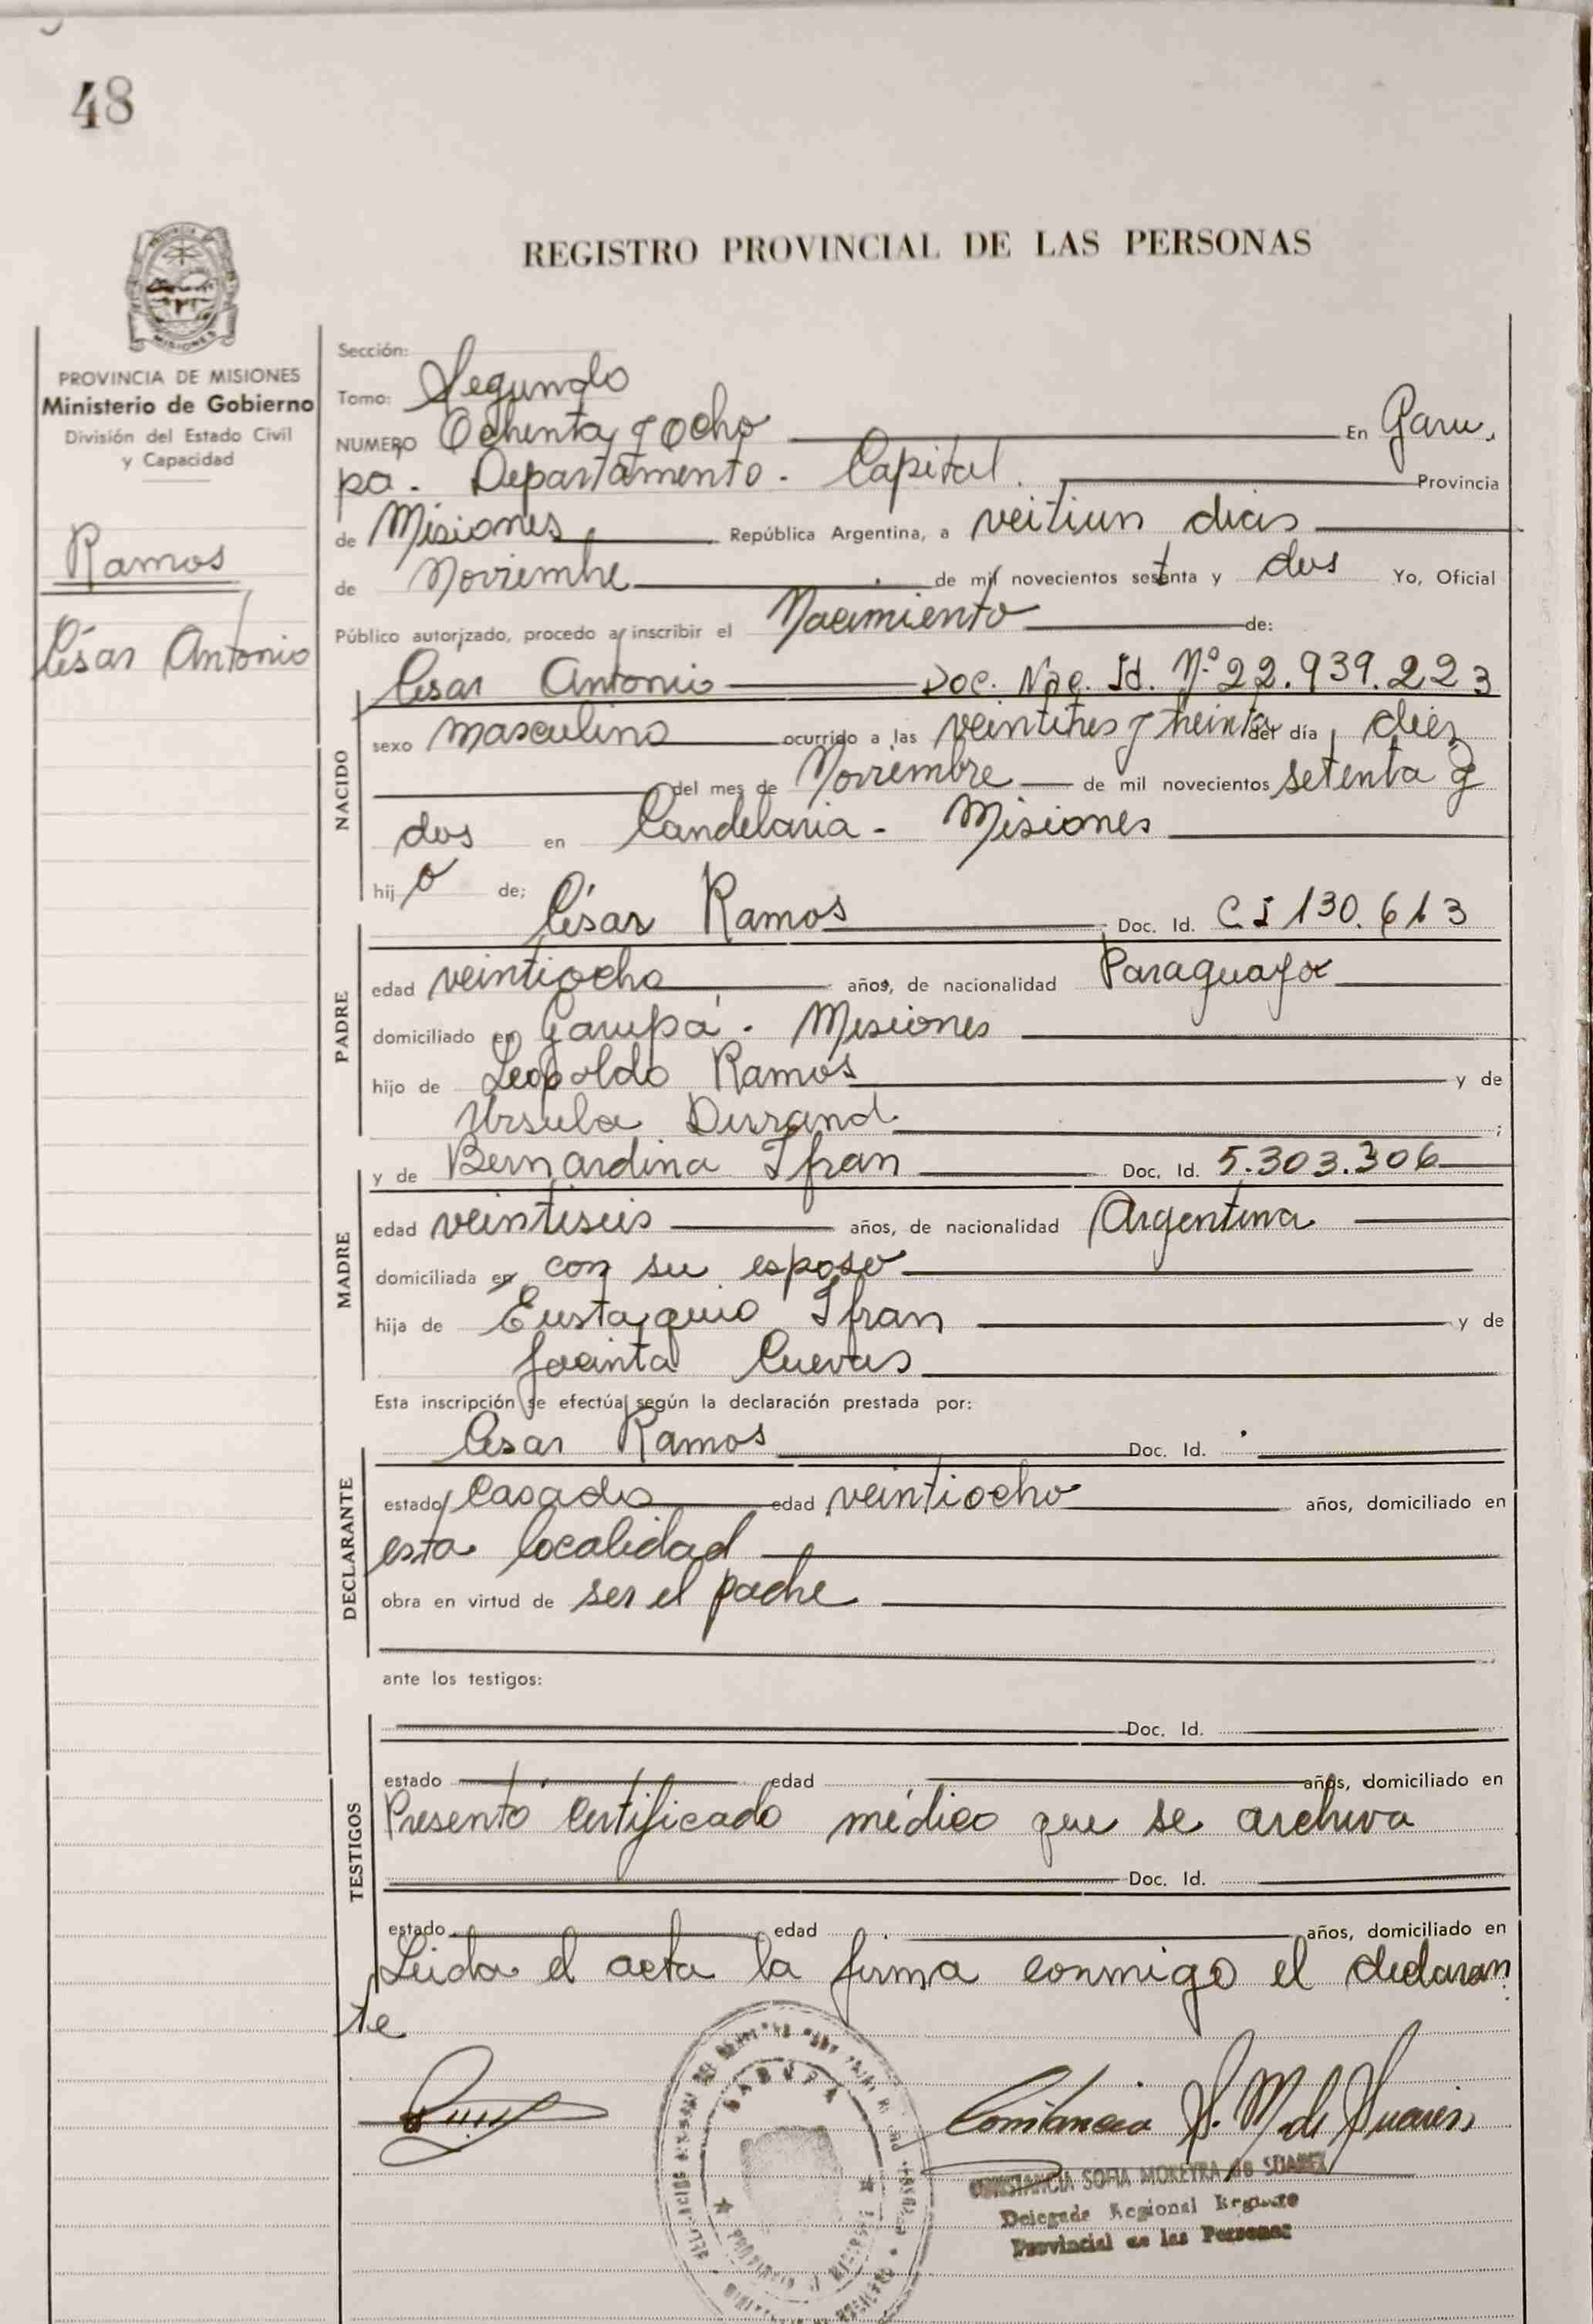 48
REGISTRO PROVINCIAL DE LAS PERSONAS
MISIONES
PROVINCIA DE MISIONES
Ministerio de Gobierno
División del Estado Civil
y Capacidad
Ramos
César Antonio
Sección:
Tomo: Segundo
NUMERO Ochenta y Ocho En Garu,
pa. Departamento. Capital. Provincia
de Misiones República Argentina, a veitiun dias
de Noviembre de mil novecientos setenta y dos Yo, Oficial
Público autorizado, procedo a inscribir el Nacimiento de:
César Antonio Doc. Nac. Id. Nº 22.939.223
NACIDO
sexo masculino ocurrido a las veintitres y treinta del día diez
del mes de Noviembre de mil novecientos setenta y
dos en Candelaria - Misiones
hij o de;
César Ramos Doc. Id. C I 130.613
PADRE
edad veintiocho años, de nacionalidad Paraguaya
domiciliado en Garupá. Misiones
hijo de Leopoldo Ramos y de
Ursula Durand ;
y de Bernardina Ifran Doc. Id. 5.303.306
MADRE
edad veintiseis años, de nacionalidad Argentina
domiciliada en con su esposo
hija de Eustaquio Ifran y de
Jacinta Cuevas
Esta inscripción se efectúa según la declaración prestada por:
César Ramos Doc. Id.
DECLARANTE
estado Casado edad veintiocho años, domiciliado en
esta localidad
obra en virtud de ser el padre
ante los testigos:
Doc. Id.
TESTIGOS
estado edad años, domiciliado en
Presentó Certificado médico que se archiva
Doc. Id.
estado edad años, domiciliado en
Leida el acta la firma conmigo el declaran
te
GARUPA
Constancia S. M. de Suarez
CONSTANCIA SOFIA MOREYRA de SUAREZ
Delegada Regional Registro
Provincial de las Personas